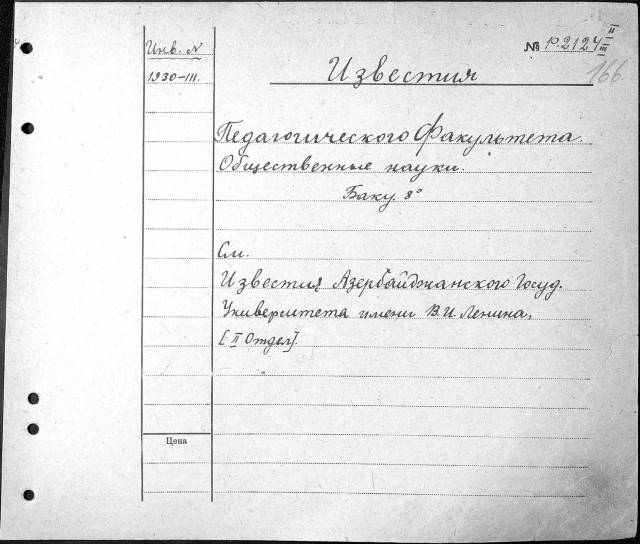 Инв. N
1930-III.
№ P.2124 II/III
166
Известия
Педагогического Факультета.
Общественные науки.
Баку. 8°
См.
Известия Азербайджанского Госуд.
Университета имени В.И. Ленина,
[II Отдел].
Цена